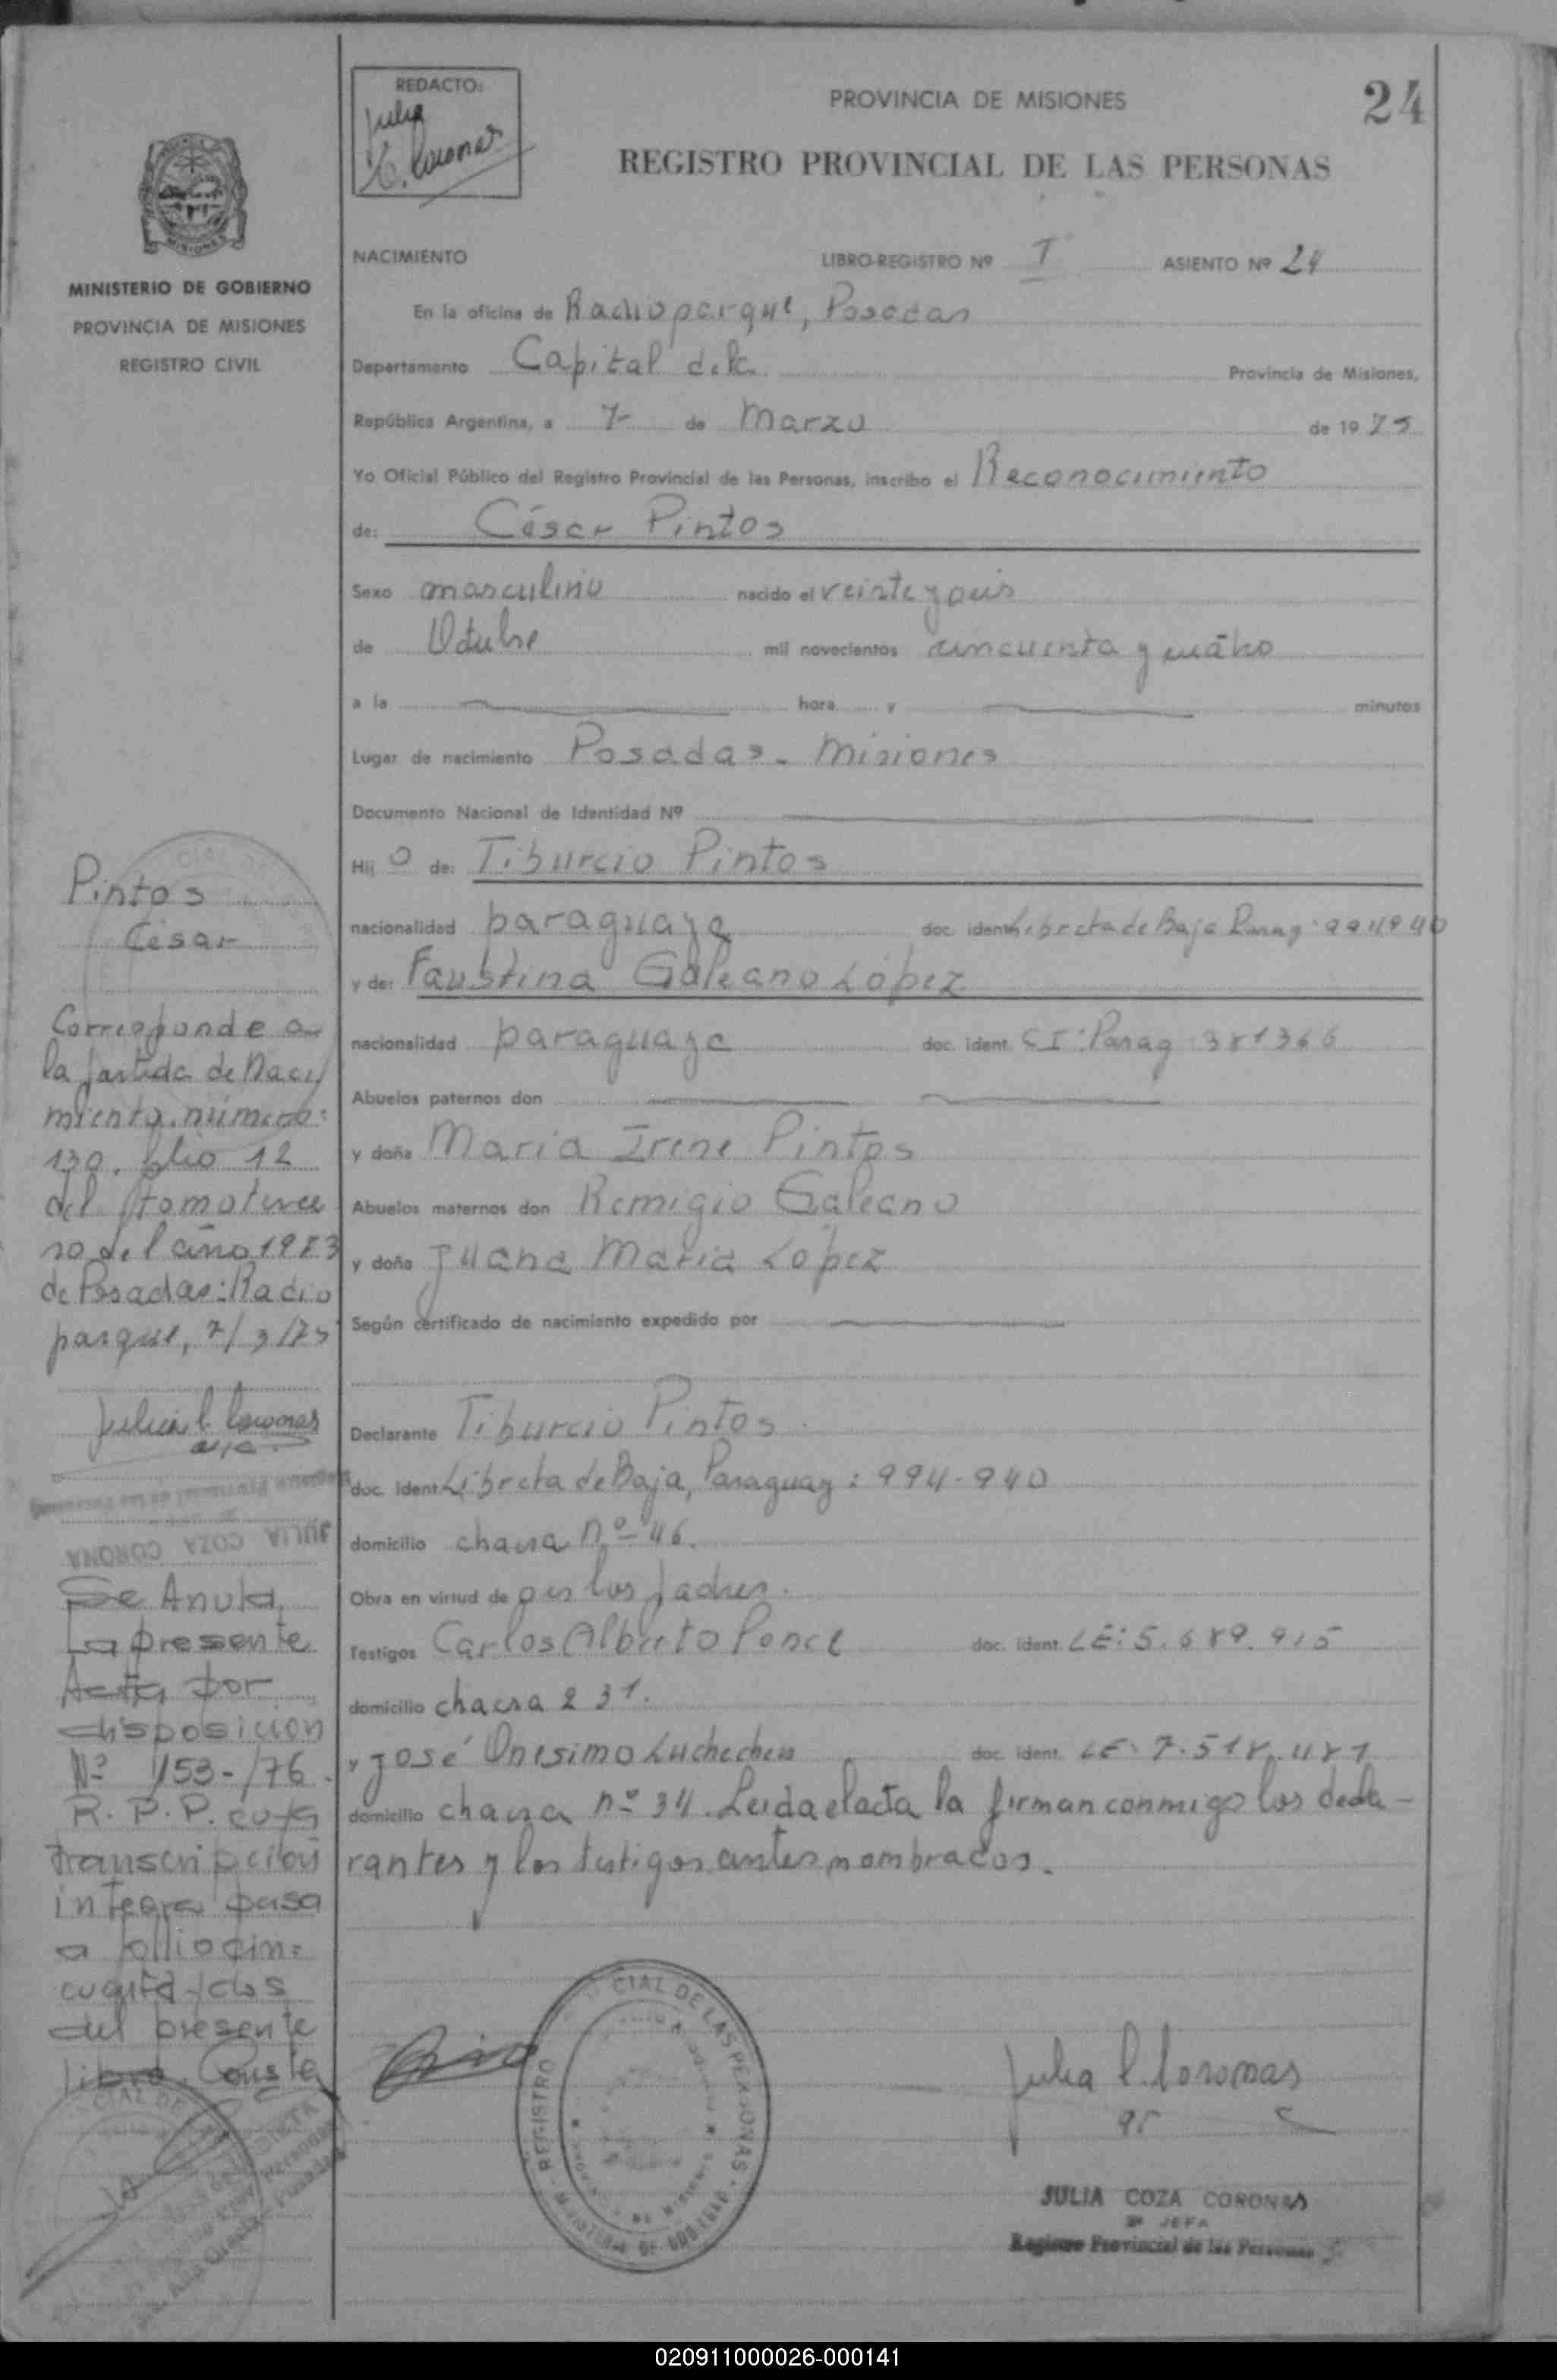 REDACTO:
Julia
C. Coronas
PROVINCIA DE MISIONES
24
REGISTRO PROVINCIAL DE LAS PERSONAS
MISIONES
MINISTERIO DE GOBIERNO
PROVINCIA DE MISIONES
REGISTRO CIVIL
NACIMIENTO LIBRO-REGISTRO Nº I ASIENTO Nº 24
En la oficina de Radioparque, Posadas
Departamento Capital de la Provincia de Misiones,
República Argentina, a 7- de Marzo de 1975
Yo Oficial Público del Registro Provincial de las Personas, inscribo el Reconocimiento
de: César Pintos
Sexo masculino nacido el veinte y seis
de Octubre mil novecientos cincuenta y cuatro
a la hora y minutos
Lugar de nacimiento Posadas - Misiones
Documento Nacional de Identidad Nº
Hij o de: Tiburcio Pintos
nacionalidad paraguaya doc. ident. Libreta de Baja Parag: 994940
y de: Faustina Galeano López
nacionalidad paraguaya doc. ident. CI: Parag: 381366
Abuelos paternos don
y doña Maria Irene Pintos
Abuelos maternos don Remigio Galeano
y doña Juana Maria López
Según certificado de nacimiento expedido por
Declarante Tiburcio Pintos.
doc. ident. Libreta de Baja, Paraguay: 994-940
domicilio chacra nº 46.
Obra en virtud de ser los padres.
Testigos Carlos Alberto Ponce doc. ident. LE: 5.689.915
domicilio chacra 231.
y José Onesimo doc. ident. LE: 7.518.481
domicilio chacra nº 34. Leida el acta la firman conmigo los decla-
rantes y los testigos antes nombrados.
Pintos
César
Corresponde a
la partida de Naci
miento, número:
130. folio 12
del tomo terce
ro del año 1973
de Posadas: Radio
parque, 7/3/75
Julia C. Coronas
JULIA COZA CORONA
Se Anula
La presente
Acta por
disposicion
Nº 153-/76.
R.P.P. cuya
transcripcion
integra pasa
a folio cin=
cuenta y dos
del presente
libro. Conste
REGISTRO CIAL DE LAS PERSONAS
MINISTERIO DE GOBIERNO
Julia C. Coronas
JULIA COZA CORONAS
JEFA
Registro Provincial de las Personas
020911000026-000141